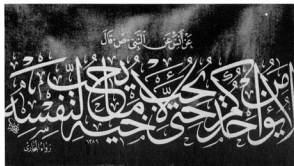 عن أنس عن النبي ص قال
لا يؤمن أحدكم حتى يحب لأخيه ما يحب لنفسه
رواه البخاري